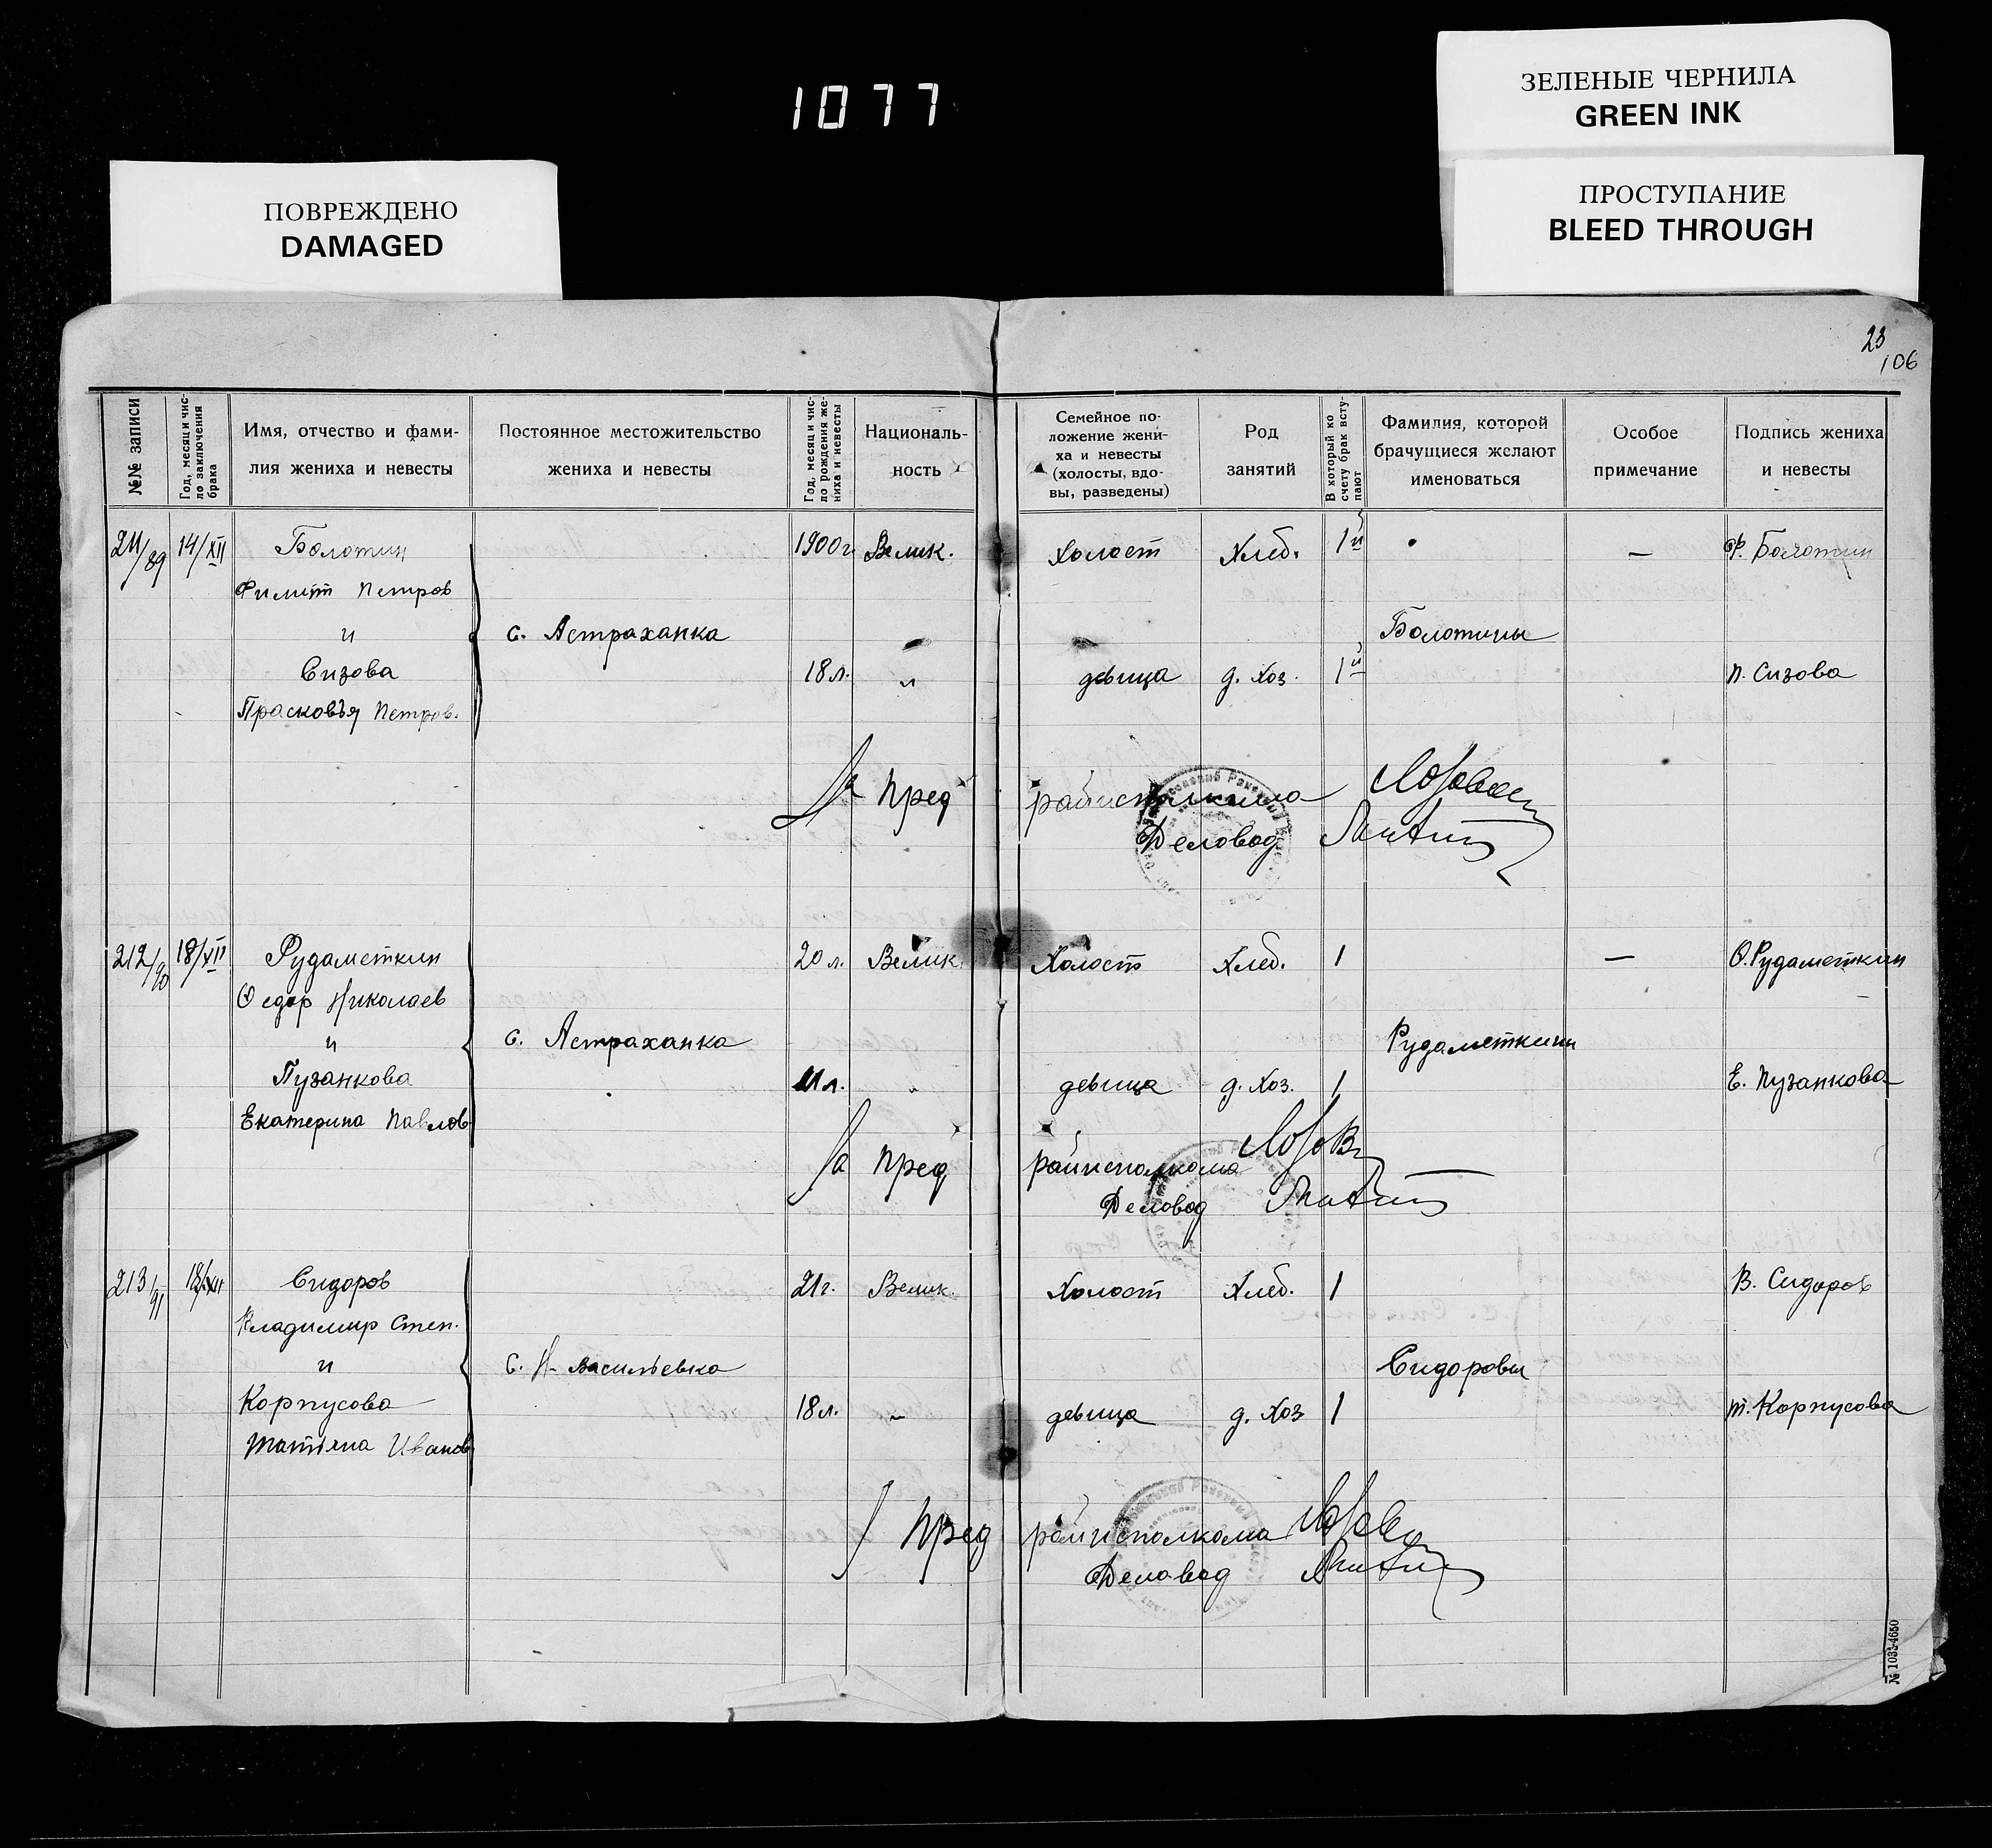 1077
ЗЕЛЕНЫЕ ЧЕРНИЛА
GREEN INK
ПРОСТУПАНИЕ
BLEED THROUGH
ПОВРЕЖДЕНО
DAMAGED
23
106
№№ записи
Год, месяц и чис-
ло заключения
брака
Имя, отчество и фами-
лия жениха и невесты
Постоянное местожительство
жениха и невесты
Год, месяц и чис-
ло рождения же-
ниха и невесты
Националь-
ность
Семейное по-
ложение жени-
ха и невесты
(холосты, вдо-
вы, разведены)
Род
занятий
В который ко
счету брак всту-
пают
Фамилия, которой
брачущиеся желают
именоваться
Особое
примечание
Подпись жениха
и невесты
211/89 14/XII Болотин 1900г. Велик. Холост Хлеб. 1й — Ф. Болотин
Петров
и с. Астраханка Болотины
Сизова 18л. " девица д. хоз. 1й П. Сизова
Прасковья Петров.
За Пред райисполкома
Деловод
212/90 18/XII Рудометкин 20 л. Велик. Холост Хлеб. 1 — Ф. Рудометкин
Федор Николаев
и с. Астраханка Рудометкины
Пузанкова л. " девица д. хоз. 1 Е. Пузанкова
Екатерина Павлов
За Пред райисполкома
Деловод
213/91 18/XII Сидоров 21г. Велик. Холост Хлеб. 1 В. Сидоров
Владимир Степ.
и с. Н-Васильевка Сидоровы
Корпусова 18л. " девица д. хоз 1 Т. Корпусова
Татіяна Иванов
Пред райисполкома
Деловод
№ 1033-4650